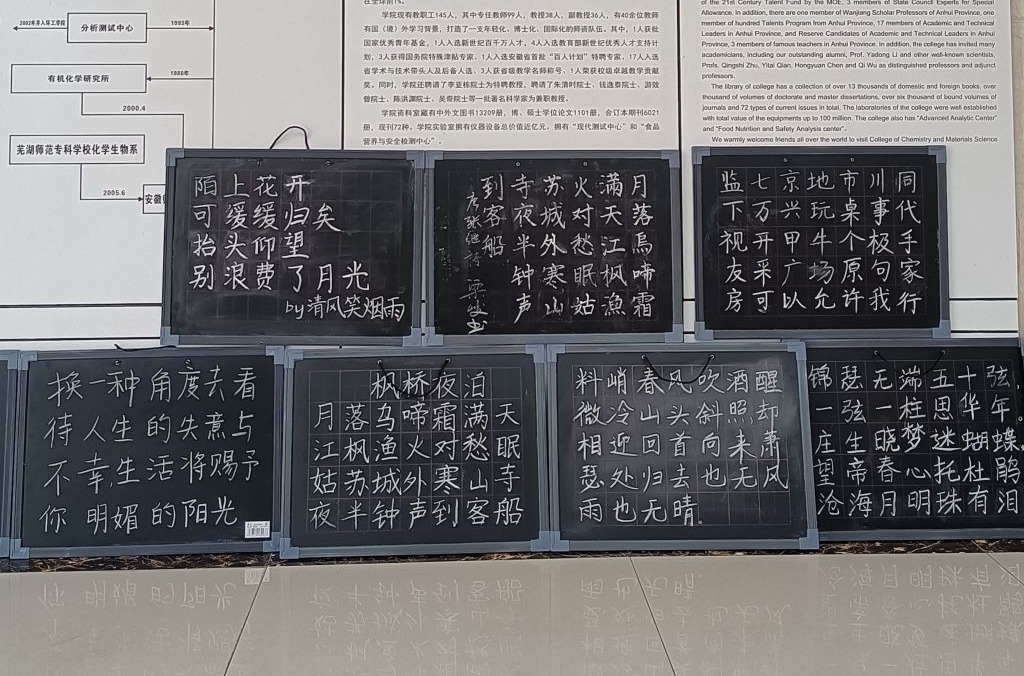 2002年并入环工学院
分析测试中心
1993年
有机化学研究所
1986年
2000.4
芜湖师范专科学校化学生物系
2005.6
学院现有教职工145人，其中专任教师99人，教授38人，副教授36人，有40余位教师
有国（境）外学习背景，打造了一支年轻化、博士化、国际化的师资队伍。其中，1人获批
国家优秀青年基金，1人入选新世纪百千万人才，4人入选教育部新世纪优秀人才支持计
划，3人获得国务院特殊津贴专家，1人入选安徽省首批“百人计划”特聘专家、17人入选
省学术与技术带头人及后备人选，3人获省级教学名师称号，1人荣获校级卓越教学贡献
奖。同时，学院还聘请了李亚栋院士为特聘教授，聘请了朱清时院士、钱逸泰院士、游效
曾院士、陈洪渊院士、吴奇院士等一批著名科学家为兼职教授。
学院资料室藏有中外文图书13209册，博、硕士学位论文1101册，合订本期刊6021
册，现刊72种。学院实验室拥有仪器设备总价值近亿元，拥有“现代测试中心”和“食品
营养与安全检测中心”。
of the 21st Century Talent Fund by the MOE, 3 members of State Council Experts for Special
Allowance. In addition, there are one member of Wanjiang Scholar Professors of Anhui Province, one
member of hundred Talents Program from Anhui Province, 17 members of Academic and Technical
Leaders in Anhui Province, and Reserve Candidates of Academic and Technical Leaders in Anhui
Province, 3 members of famous teachers in Anhui Province. In addition, the college has invited many
academicians, including our outstanding alumni, Prof. Yadong Li and other well-known scientists,
Profs. Qingshi Zhu, Yitai Qian, Hongyuan Chen and Qi Wu as distinguished professors and adjunct
professors.
The library of college has a collection of over 13 thousands of domestic and foreign books, over
thousand of volumes of doctorate and master dissertations, over six thousand of bound volumes of
journals and 72 types of current issues in total. The laboratories of the college were well established
with total value of the equipments up to 100 million. The college also has "Advanced Analytic Center"
and "Food Nutrition and Safety Analysis center".
We warmly welcome friends all over the world to visit College of Chemistry and Materials Science
陌上花开
可缓缓归矣
抬头仰望
别浪费了月光
by清风笑烟雨
月落烏啼霜
满天江枫漁
火对愁眠姑
苏城外寒山
寺夜半钟声
到客船
唐张继诗
监七京地市川同
下万兴玩桌事代
视开甲牛个极手
友采广场原句家
房可以允许我行
换一种角度去看
待人生的失意与
不幸,生活将赐予
你明媚的阳光
枫桥夜泊
月落乌啼霜满天
江枫渔火对愁眠
姑苏城外寒山寺
夜半钟声到客船
料峭春风吹酒醒
微冷山头斜照却
相迎回首向来萧
瑟处归去也无风
雨也无晴。
锦瑟无端五十弦,
一弦一柱思华年。
庄生晓梦迷蝴蝶
望帝春心托杜鹃
沧海月明珠有泪